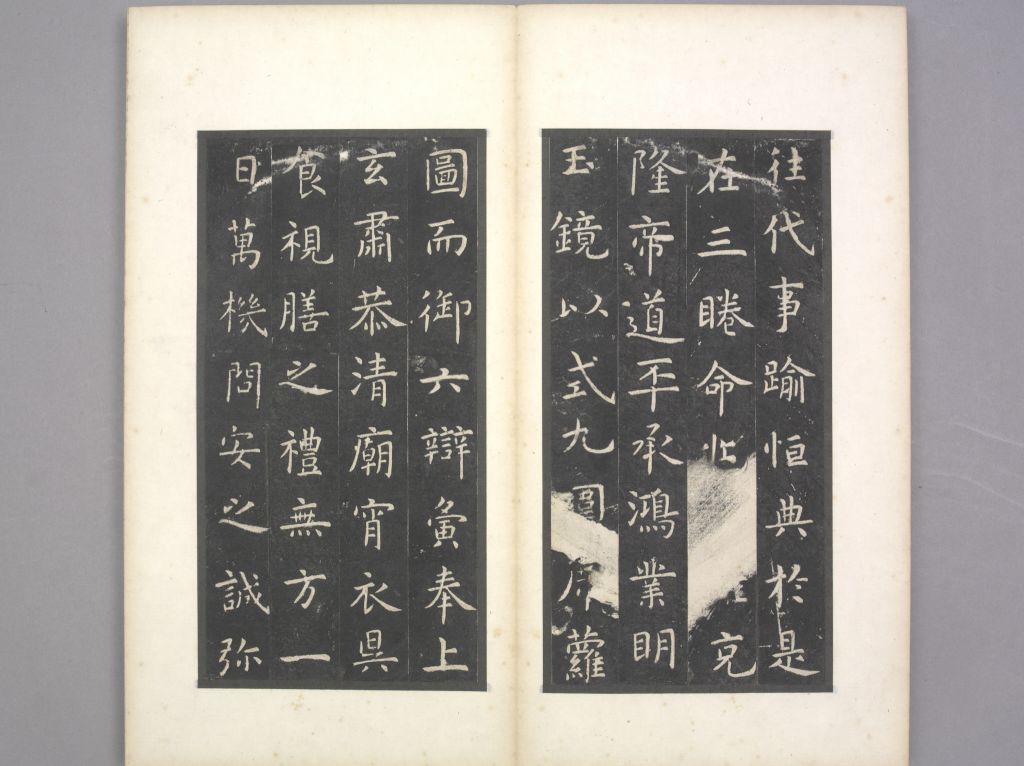 往代事踰恒典於是
在三睠命 克
隆帝道平承鴻業明
玉鏡以式九圍 蘿
圖而御六辯寅奉上
玄肅恭清廟宵衣昃
食視膳之禮無方一
日萬機問安之誠弥